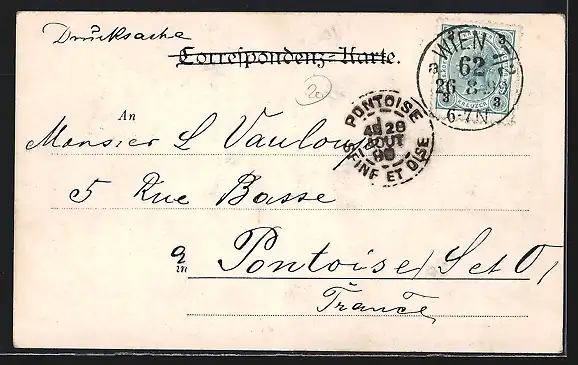 Drucksache
Correspondenz-Karte.
WIEN 7/2
62
26 8 9
6-7N
3 3
KREUZER
3 3
20
PONTOISE
4E 28
AOUT
98
SEINE ET OISE
An
Monsier L Vauloup
5 Rue Basse
à
in
Pontoise (S et O)
France